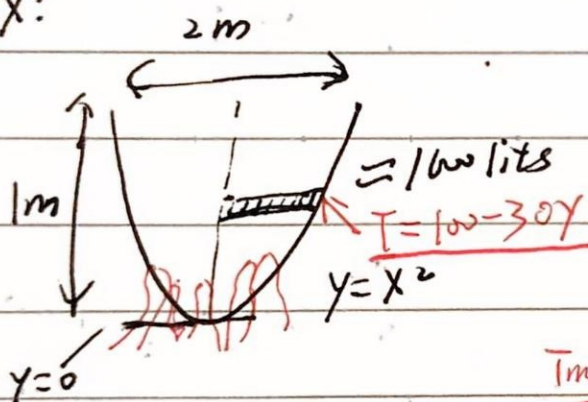 X:
2m
1m
= 1600 lits
T=100-30y
y=x²
y=0
Tm